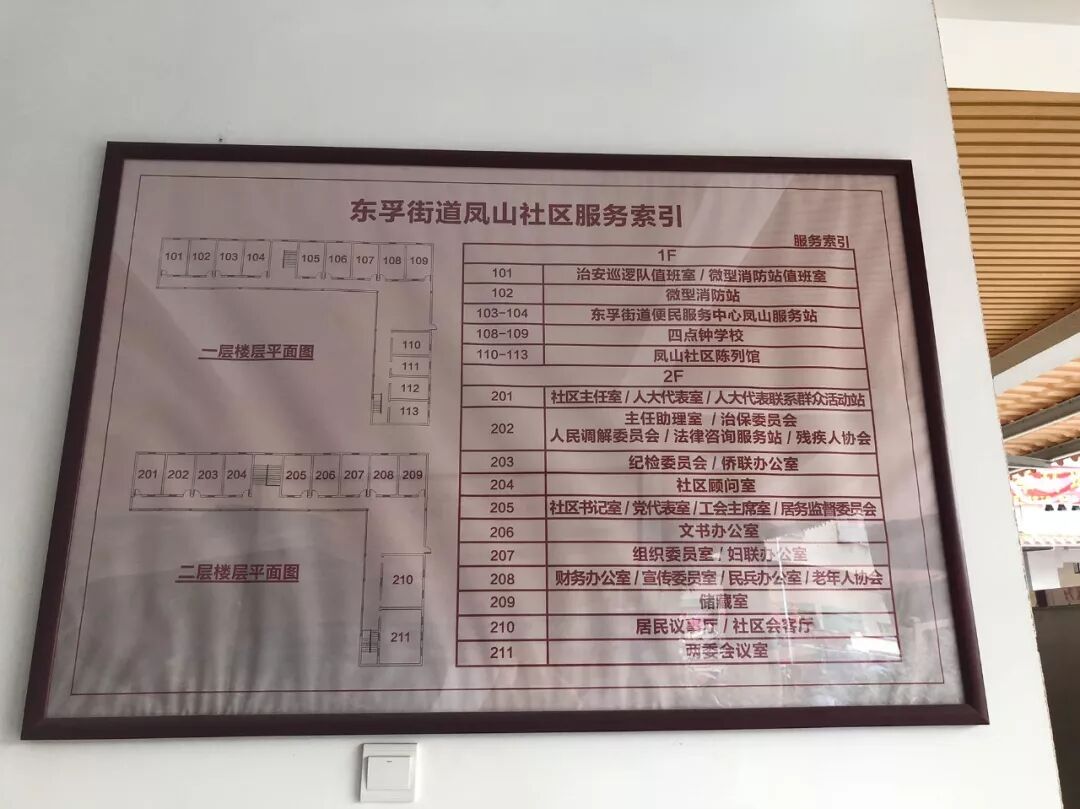 东孚街道凤山社区服务索引
服务索引
101 102 103 104 105 106 107 108 109
110
111
112
113
一层楼层平面图
201 202 203 204 205 206 207 208 209
210
211
二层楼层平面图
1F
101 治安巡逻队值班室 / 微型消防站值班室
102 微型消防站
103-104 东孚街道便民服务中心凤山服务站
108-109 四点钟学校
110-113 凤山社区陈列馆
2F
201 社区主任室 / 人大代表室 / 人大代表联系群众活动站
202 主任助理室 / 治保委员会
人民调解委员会 / 法律咨询服务站 / 残疾人协会
203 纪检委员会 / 侨联办公室
204 社区顾问室
205 社区书记室 / 党代表室 / 工会主席室 / 居务监督委员会
206 文书办公室
207 组织委员室 / 妇联办公室
208 财务办公室 / 宣传委员室 / 民兵办公室 / 老年人协会
209 储藏室
210 居民议事厅 / 社区会客厅
211 两委会议室